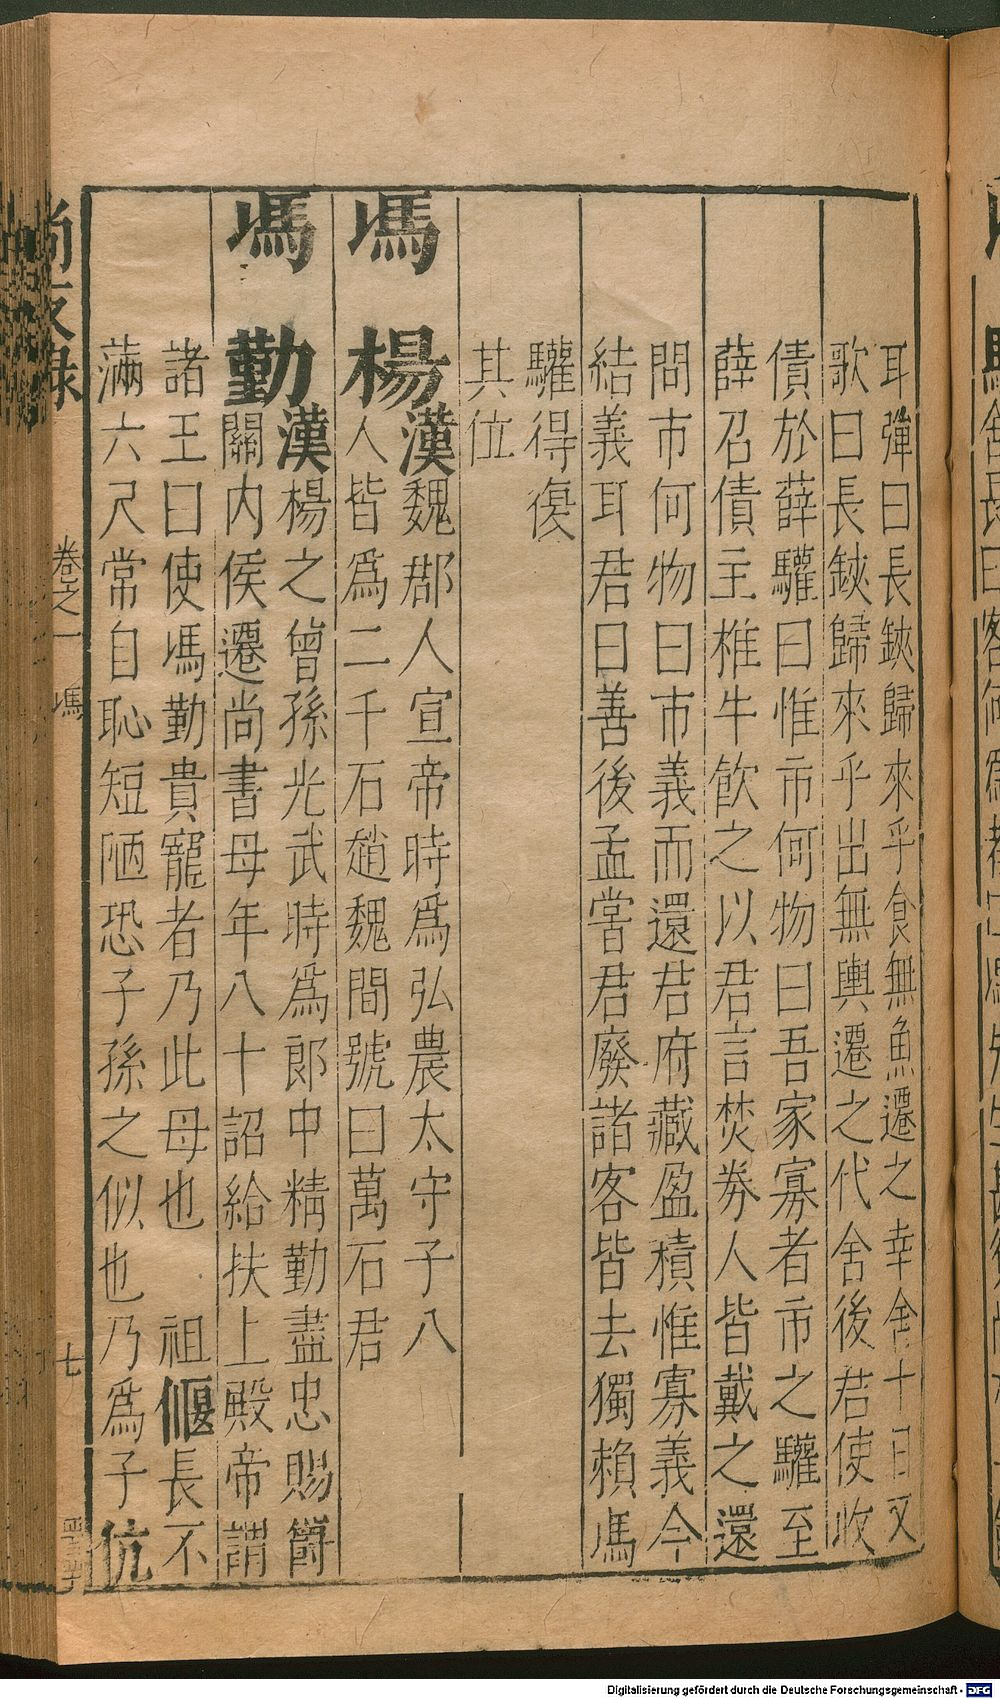 耳彈曰長鋏歸來乎食無魚遷之幸舍十日又
歌曰長鋏歸來乎出無輿遷之代舍後君使收
債於薛驩曰惟市何物曰吾家寡者市之驩至
薛召債主椎牛飲之以君言焚券人皆戴之還
問市何物曰市義而還君府藏盈積惟寡義今
結義耳君曰善後孟嘗君廢諸客皆去獨賴馮
驩得復
其位
馮楊漢魏郡人宣帝時爲弘農太守子八
人皆爲二千石趙魏間號曰萬石君
馮勤漢楊之曾孫光武時爲郎中精勤盡忠賜爵
關內侯遷尚書母年八十詔給扶上殿帝謂
諸王曰使馮勤貴寵者乃此母也 祖偃長不
滿六尺常自恥短陋恐子孫之似也乃爲子伉
尚友錄 卷之一 馮 七
Digitalisierung gefördert durch die Deutsche Forschungsgemeinschaft - DFG